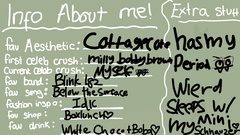 Info About me!
fav Aesthetic: Cottagecore
first celeb crush: milly bobby brown
Current celeb crush: Myself
fav band: Blink 182
fav song: Below the surface
fashion inspo: Idk
fav shop: Boxlunch
fav drink: White Choco+Boba
Extra stuff
has my
Period
Wierd
Sleeps w/
my Mini
Schnauzer